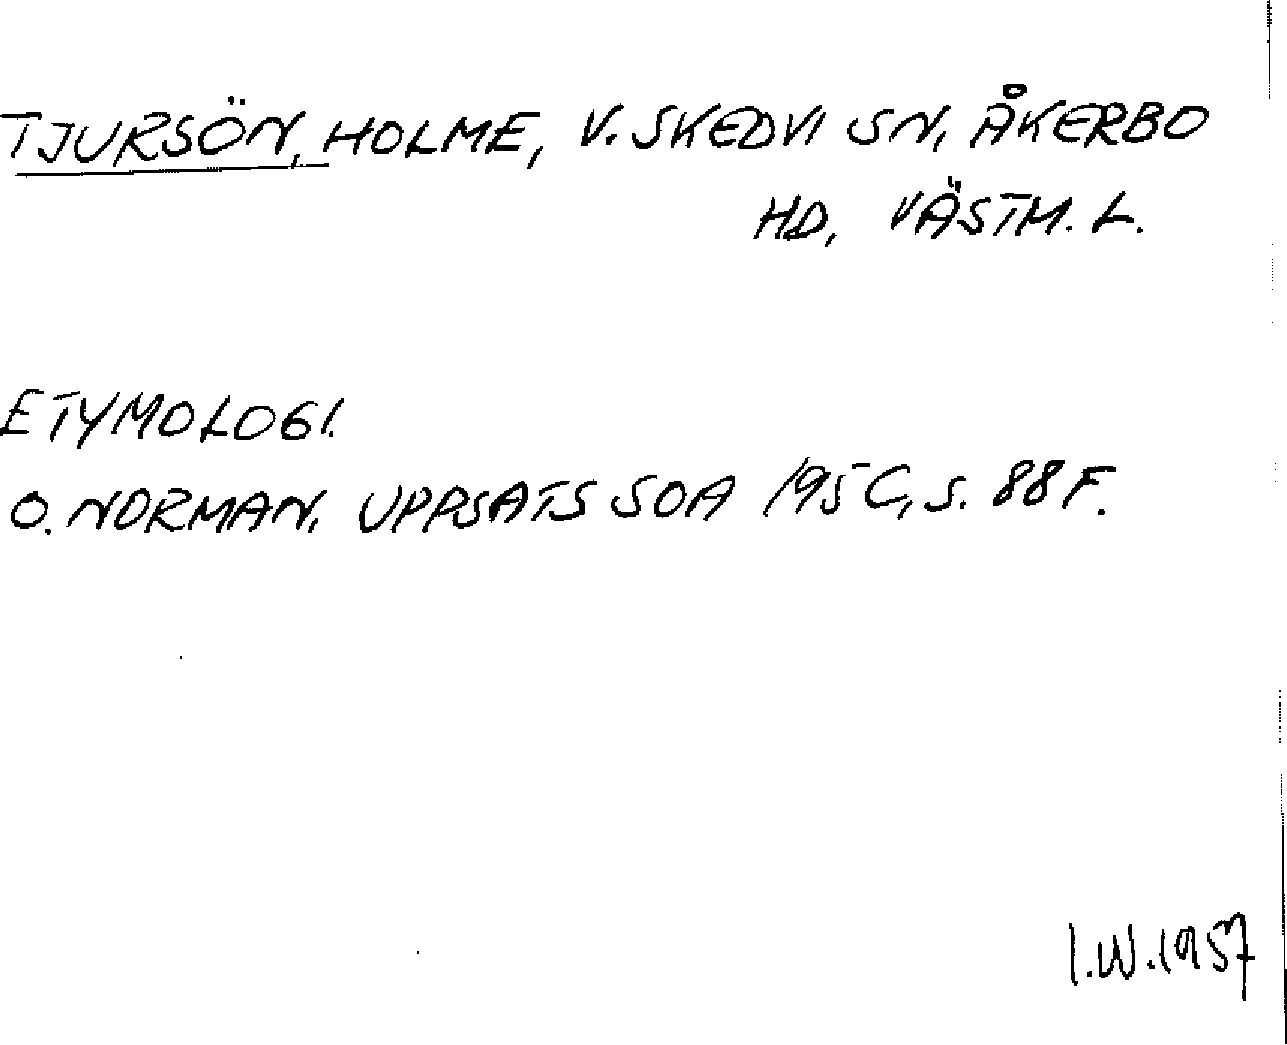 TJURSÖN, HOLME, V. SKEDVI SN, ÅKERBO
HD, VÄSTM. L.
ETYMOLOGI.
O. NORMAN, UPPSATS SOA 195C, S. 88 F.
I.W. 1957